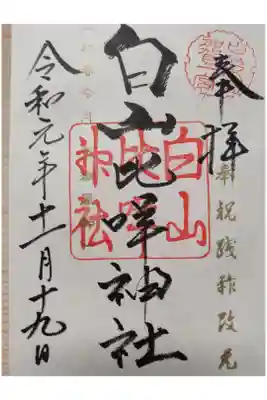 奉拝
奉祝践祚改元
白山比咩神社
白山
比咩
神社
令和元年十一月十九日